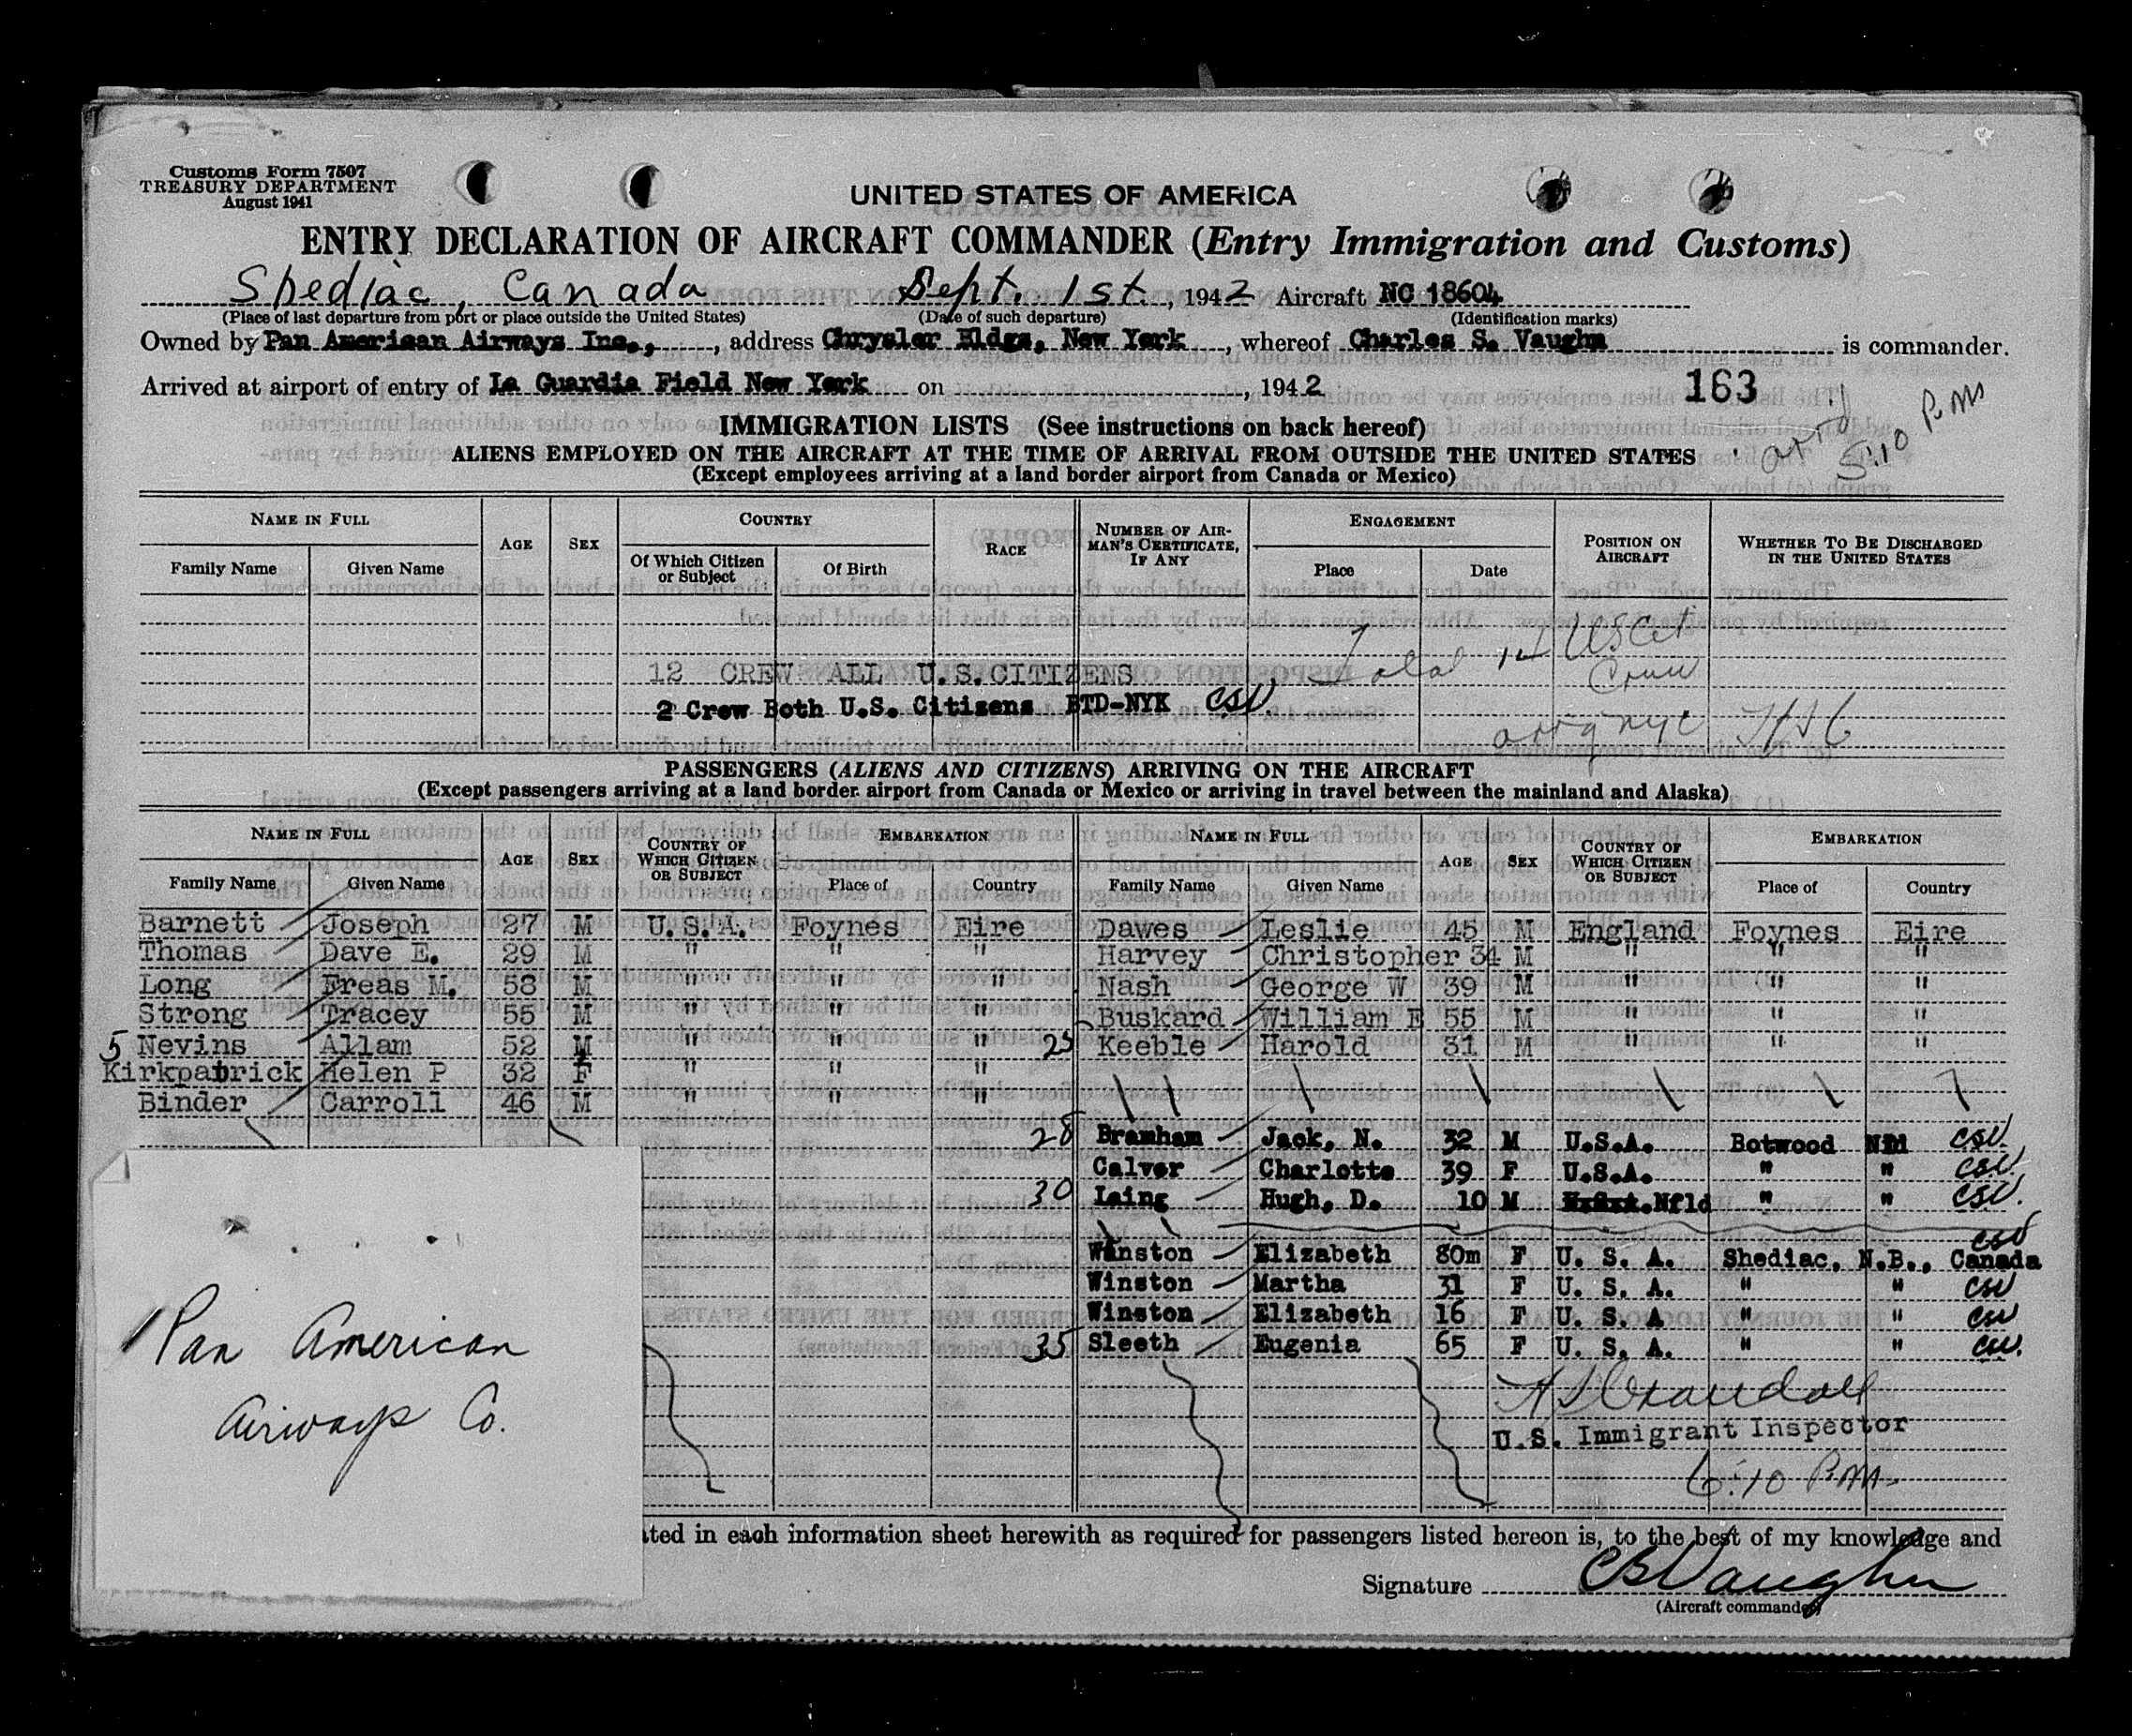 Customs Form 7507
TREASURY DEPARTMENT
August 1941
UNITED STATES OF AMERICA
ENTRY DECLARATION OF AIRCRAFT COMMANDER (Entry Immigration and Customs)
Shediac, Canada Sept. 1st, 1942 Aircraft NC 18604
(Place of last departure from port or place outside the United States) (Date of such departure) (Identification marks)
Owned by Pan American Airways Inc., , address Chrysler Bldg, New York , whereof Charles S. Vaughn is commander.
Arrived at airport of entry of La Guardia Field New York on , 1942
163
arr'd 5:10 P.M
IMMIGRATION LISTS (See instructions on back hereof)
ALIENS EMPLOYED ON THE AIRCRAFT AT THE TIME OF ARRIVAL FROM OUTSIDE THE UNITED STATES
(Except employees arriving at a land border airport from Canada or Mexico)
NAME IN FULL AGE SEX COUNTRY RACE NUMBER OF AIRMAN'S CERTIFICATE, IF ANY ENGAGEMENT POSITION ON AIRCRAFT WHETHER TO BE DISCHARGED IN THE UNITED STATES
Family Name Given Name Of Which Citizen or Subject Of Birth Place Date
12 CREW ALL U.S.CITIZENS
Total 14 US Cit Crew
2 Crew Both U.S. Citizens BTD-NYK CSV
arrg NYC
PASSENGERS (ALIENS AND CITIZENS) ARRIVING ON THE AIRCRAFT
(Except passengers arriving at a land border airport from Canada or Mexico or arriving in travel between the mainland and Alaska)
NAME IN FULL AGE SEX COUNTRY OF WHICH CITIZEN OR SUBJECT EMBARKATION NAME IN FULL AGE SEX COUNTRY OF WHICH CITIZEN OR SUBJECT EMBARKATION
Family Name Given Name Place of Country Family Name Given Name Place of Country
Barnett Joseph 27 M U.S.A. Foynes Eire Dawes Leslie 45 M England Foynes Eire
Thomas Dave E. 29 M " " " Harvey Christopher 34 M " " "
Long Freas M. 58 M " " " Nash George W 39 M " " "
Strong Tracey 55 M " " " Buskard William E 55 M " " "
5 Nevins Allam 52 M " " " 25 Keeble Harold 31 M " " "
Kirkpatrick Helen P 32 F " " "
Binder Carroll 46 M " " "
28 Bramham Jack, N. 32 M U.S.A. Botwood Nfld CSV.
Calver Charlotte 39 F U.S.A. " " CSV.
30 Laing Hugh, D. 10 M Nfld " " CSV.
CSV
Winston Elizabeth 80m F U. S. A. Shediac, N.B., Canada
Winston Martha 31 F U. S. A. " " CSV
Winston Elizabeth 16 F U. S. A " " CSV
35 Sleeth Eugenia 65 F U. S. A. " " CSV.
H S Crandall
U.S. Immigrant Inspector
6:10 P.M.
Pan American
Airways Co.
ated in each information sheet herewith as required for passengers listed hereon is, to the best of my knowledge and
Signature CSVaughn
(Aircraft commander)